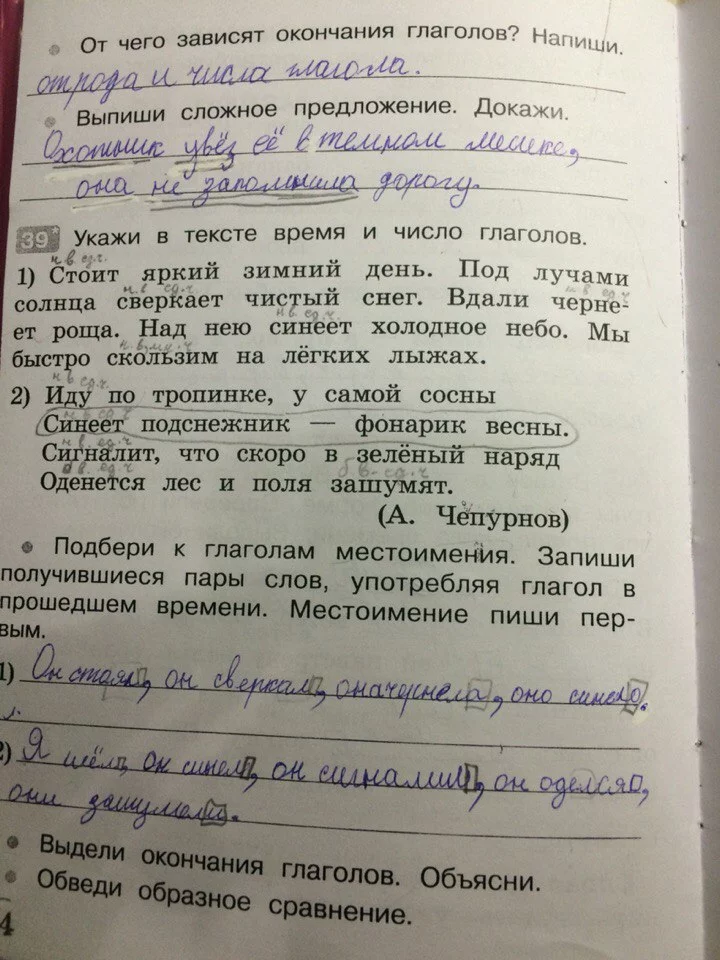 От чего зависят окончания глаголов? Напиши.
от рода и числа глагола.
Выпиши сложное предложение. Докажи.
Охотник увёз её в темном мешке,
она не запомнила дорогу.
39 Укажи в тексте время и число глаголов.
н.в. ед.ч.
1) Стоит яркий зимний день. Под лучами
н.в. ед.ч. н.в. ед.ч.
солнца сверкает чистый снег. Вдали черне-
н.в. ед.ч.
ет роща. Над нею синеет холодное небо. Мы
н.в. мн.ч
быстро скользим на лёгких лыжах.
н.в ед.ч.
2) Иду по тропинке, у самой сосны
н.в. ед.ч
Синеет подснежник — фонарик весны.
н.в. ед.ч
Сигналит, что скоро в зелёный наряд
б.в. ед.ч б.в. ед.ч
Оденется лес и поля зашумят.
(А. Чепурнов)
Подбери к глаголам местоимения. Запиши
получившиеся пары слов, употребляя глагол в
прошедшем времени. Местоимение пиши пер-
вым.
1) Он стоял, он сверкал, она чернела, оно синело.
2) Я шёл, он синел, он сигналил, он оделся,
они зашумели.
Выдели окончания глаголов. Объясни.
Обведи образное сравнение.
4